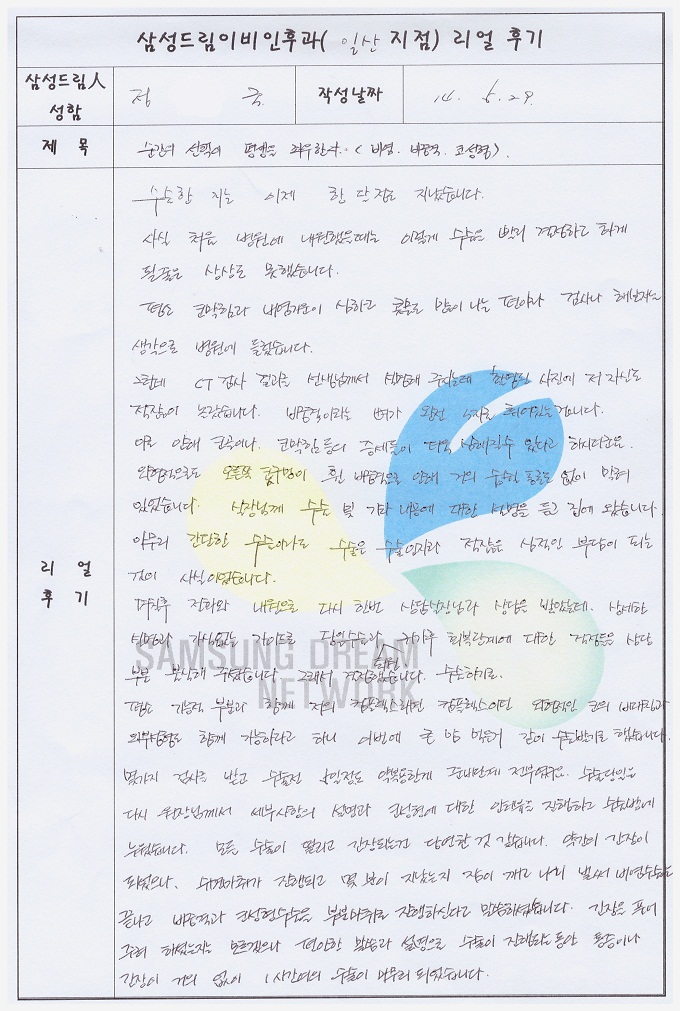 삼성드림이비인후과( 일산 지점) 리얼 후기
삼성드림人
성함
정 국
작성날짜
14. 5. 29.
제 목
순간의 선택이 평생을 좌우한다. (비염. 비중격. 코성형).
리 얼
후 기
수술한 지는 이제 한 달 정도 지났습니다.
사실 처음 병원에 내원했을때는 이렇게 수술을 빨리 결정하고 하게
될줄은 상상도 못했습니다.
평소 코막힘과 내염기운이 심하고 콧물도 많이 나는 편이라 검사나 해보자는
생각으로 병원에 들렀습니다.
그런데 CT 검사 결과를 선생님께서 설명해 주시는데 촬영된 사진에 저 자신도
적잖이 놀랐습니다. 비중격이라는 뼈가 완전 S자로 휘어있는겁니다.
이로 인해 코골이나, 코막힘 등의 증세들이 더욱 심해질수 있다고 하시더군요.
외형적으로도 오른쪽 콧구멍이 휜 비중격으로 인해 거의 숨쉴 통로도 없이 막혀
있었습니다. 실장님께 수술 및 기타 내용에 대한 설명을 듣고 집에 왔습니다.
아무리 간단한 수술이라도 수술은 수술인지라 적잖은 심적인 부담이 되는
것이 사실이었습니다.
며칠후 전화와 내원으로 다시 한번 상담실장님과 상담을 받았는데. 상세한
설명과 가식없는 가이드로 당일수술과 귀가후 회복단계에 대한 걱정들을 상당
부분 불식해 주셨습니다. 그래서 결정했습니다. 수술하기로.
SAMSUNG DREAM
NETWORK
평소 기능적 부분과 함께 저의 컴플렉스라면 컴플렉스이던 외형적인 코의 비대칭과
함께 가능하라고 하니 이번에 큰 맘 먹은거 같이 수술받기로 했습니다.
몇가지 검사를 받고 수술전 약복용한게 준비단계 전부였구요. 수술당일은
다시 원장님께서 세부사항의 설명과 코성형에 대한 진행하고 수술방에
누웠습니다. 모든 수술이 떨리고 긴장되는건 당연한 것 같습니다. 약간의 긴장이
되었으나, 수면마취가 진행되고 몇 분이 지났는지 잠이 깨고 나니 벌써 비염수술은
끝나고 비중격과 코성형수술을 부분마취로 진행하신다고 말씀하셨습니다. 긴장을 풀어
주려 하셨는지는 모르겠으나 편안한 말씀과 설명으로 수술이 진행되는동안 통증이나
긴장이 거의 없이 1시간여의 수술이 마무리 되었습니다.